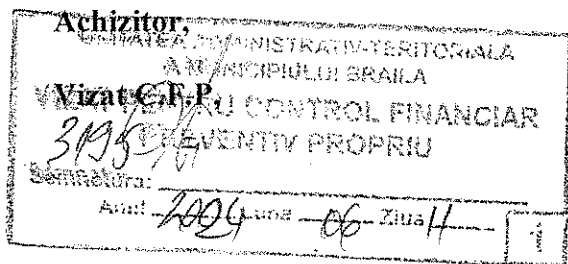 Achizitor,
UNITATEA ADMINISTRATIV-TERITORIALA
A MUNICIPIULUI BRAILA
Vizat C.F.P,
VIZAT PENTRU CONTROL FINANCIAR
PREVENTIV PROPRIU
Semnatura:
Anul 2024 Luna 06 Ziua 11